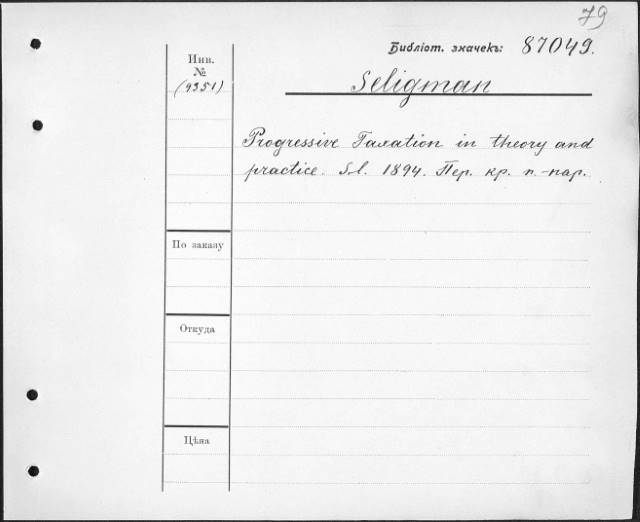 79
Библіот. значекъ: 87049.
Инв.
№
(9351)
Seligman
Progressive Taxation in theory and
practice. S.l. 1894. Пер. кр. п.-пар.
По заказу
Откуда
Цѣна